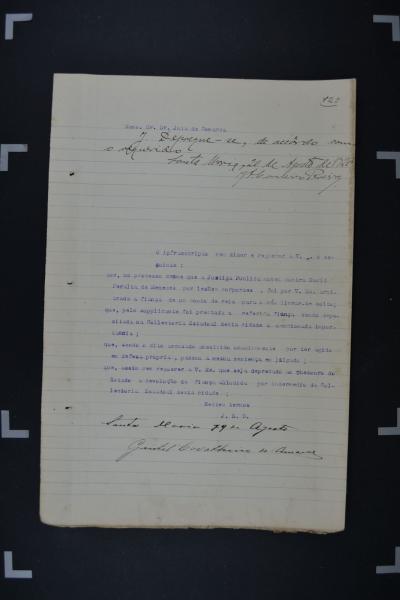 122
Exmo. Sr. Dr. Juiz da Comarca
J. Depreque-se, de accôrdo com
o requerido
Santa Maria, de Agosto de
O infrascripto vem dizer e requerer a V. o se-
guinte :
que, no processo crime que a Justiça Publica moveu contra
Peralta de Menezes por lesões corporaes , foi por V. Ex. arbi-
trada a fiança de um conto de reis para o réo livrar-se solto;
que, pelo supplicante foi prestada a referida fiança sendo depo-
sitada na Collectoria Estadual desta cidade a mencionada impor-
tancia ;
que, sendo o dito accusado absolvido unanimemente por ter agido
em defeza propria , passou a mesma sentença em julgado ;
que, assim vem requerer a V. Ex. que seja deprecado ao Thesouro do
Estado a devolução da fiança alludida por intermedio da Col-
lectoria Estadual desta cidade ;
Nestes termos
J. E. D.
Santa Maria 29 de Agosto
Gentil